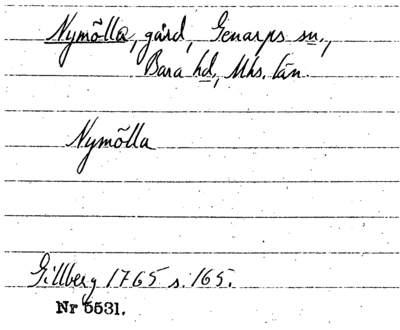 Nymölla, gård, Genarps sn.,
Bara hd, Mhs. län.
Nymölla
Gillberg 1765 s. 165.
Nr 5531.